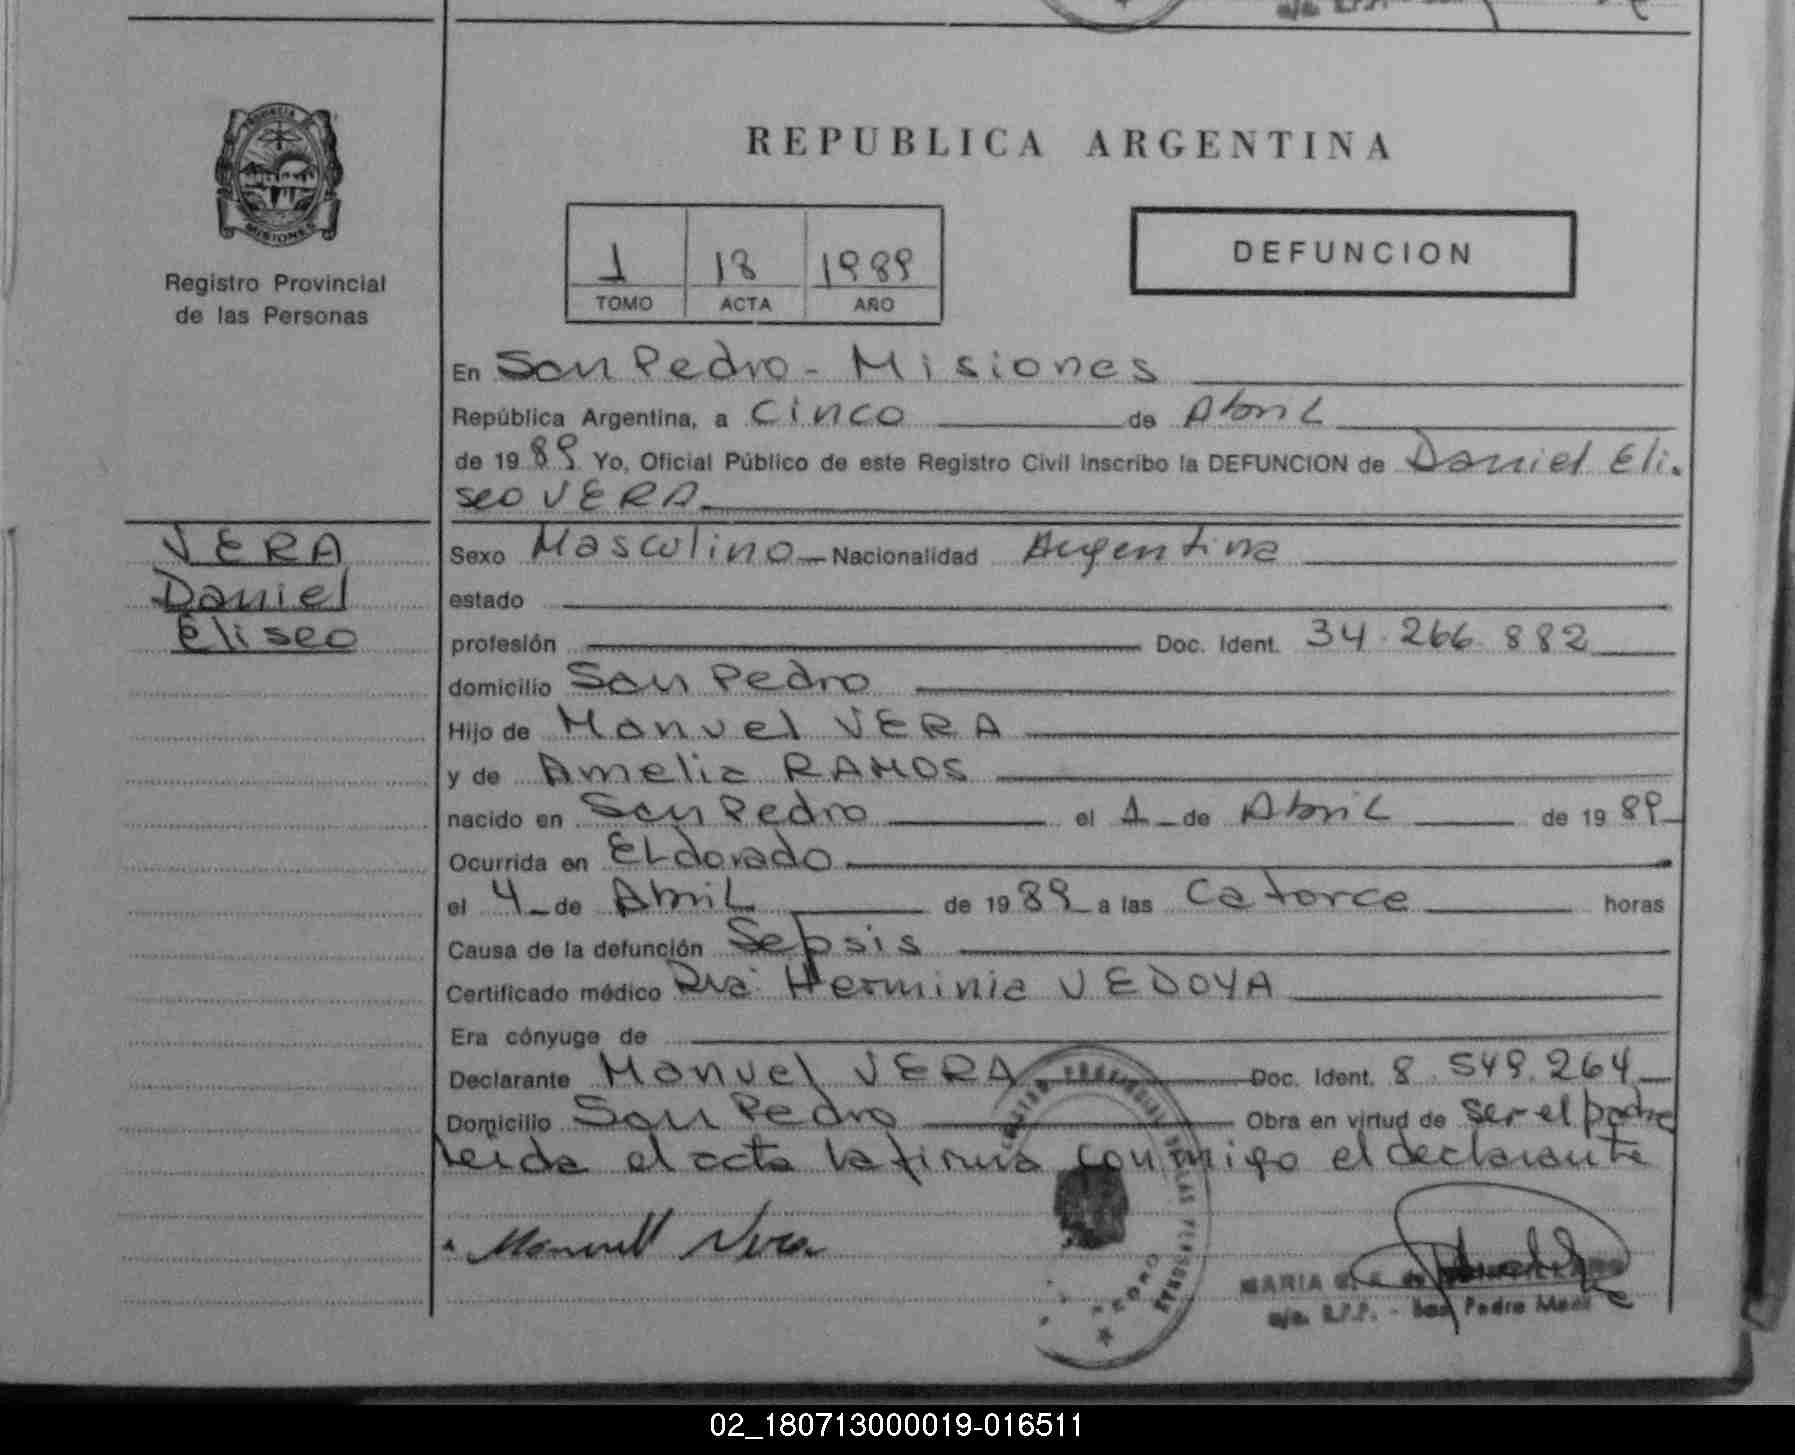 PROVINCIA
MISIONES
Registro Provincial
de las Personas
REPUBLICA ARGENTINA
1 18 1989
TOMO ACTA AÑO
DEFUNCION
En San Pedro - Misiones
República Argentina, a Cinco de Abril
de 1989 Yo, Oficial Público de este Registro Civil inscribo la DEFUNCION de Daniel Eli-
seo VERA
VERA
Daniel
Eliseo
Sexo Masculino Nacionalidad Argentina
estado
profesión Doc. Ident. 34.266.882
domicilio San Pedro
Hijo de Manuel VERA
y de Amelia RAMOS
nacido en San Pedro el 1 de Abril de 1989
Ocurrida en ELdorado
el 4 de Abril de 1989 a las Catorce horas
Causa de la defunción Sepsis
Certificado médico Dra. Herminia VEDOYA
Era cónyuge de
Declarante Manuel VERA Doc. Ident. 8.549.264
Domicilio San Pedro Obra en virtud de ser el padre
leida el acta la firma conmigo el declarante
Manuell Vera
MARIA de
R.P.P. - San Pedro Mnes
02_180713000019-016511